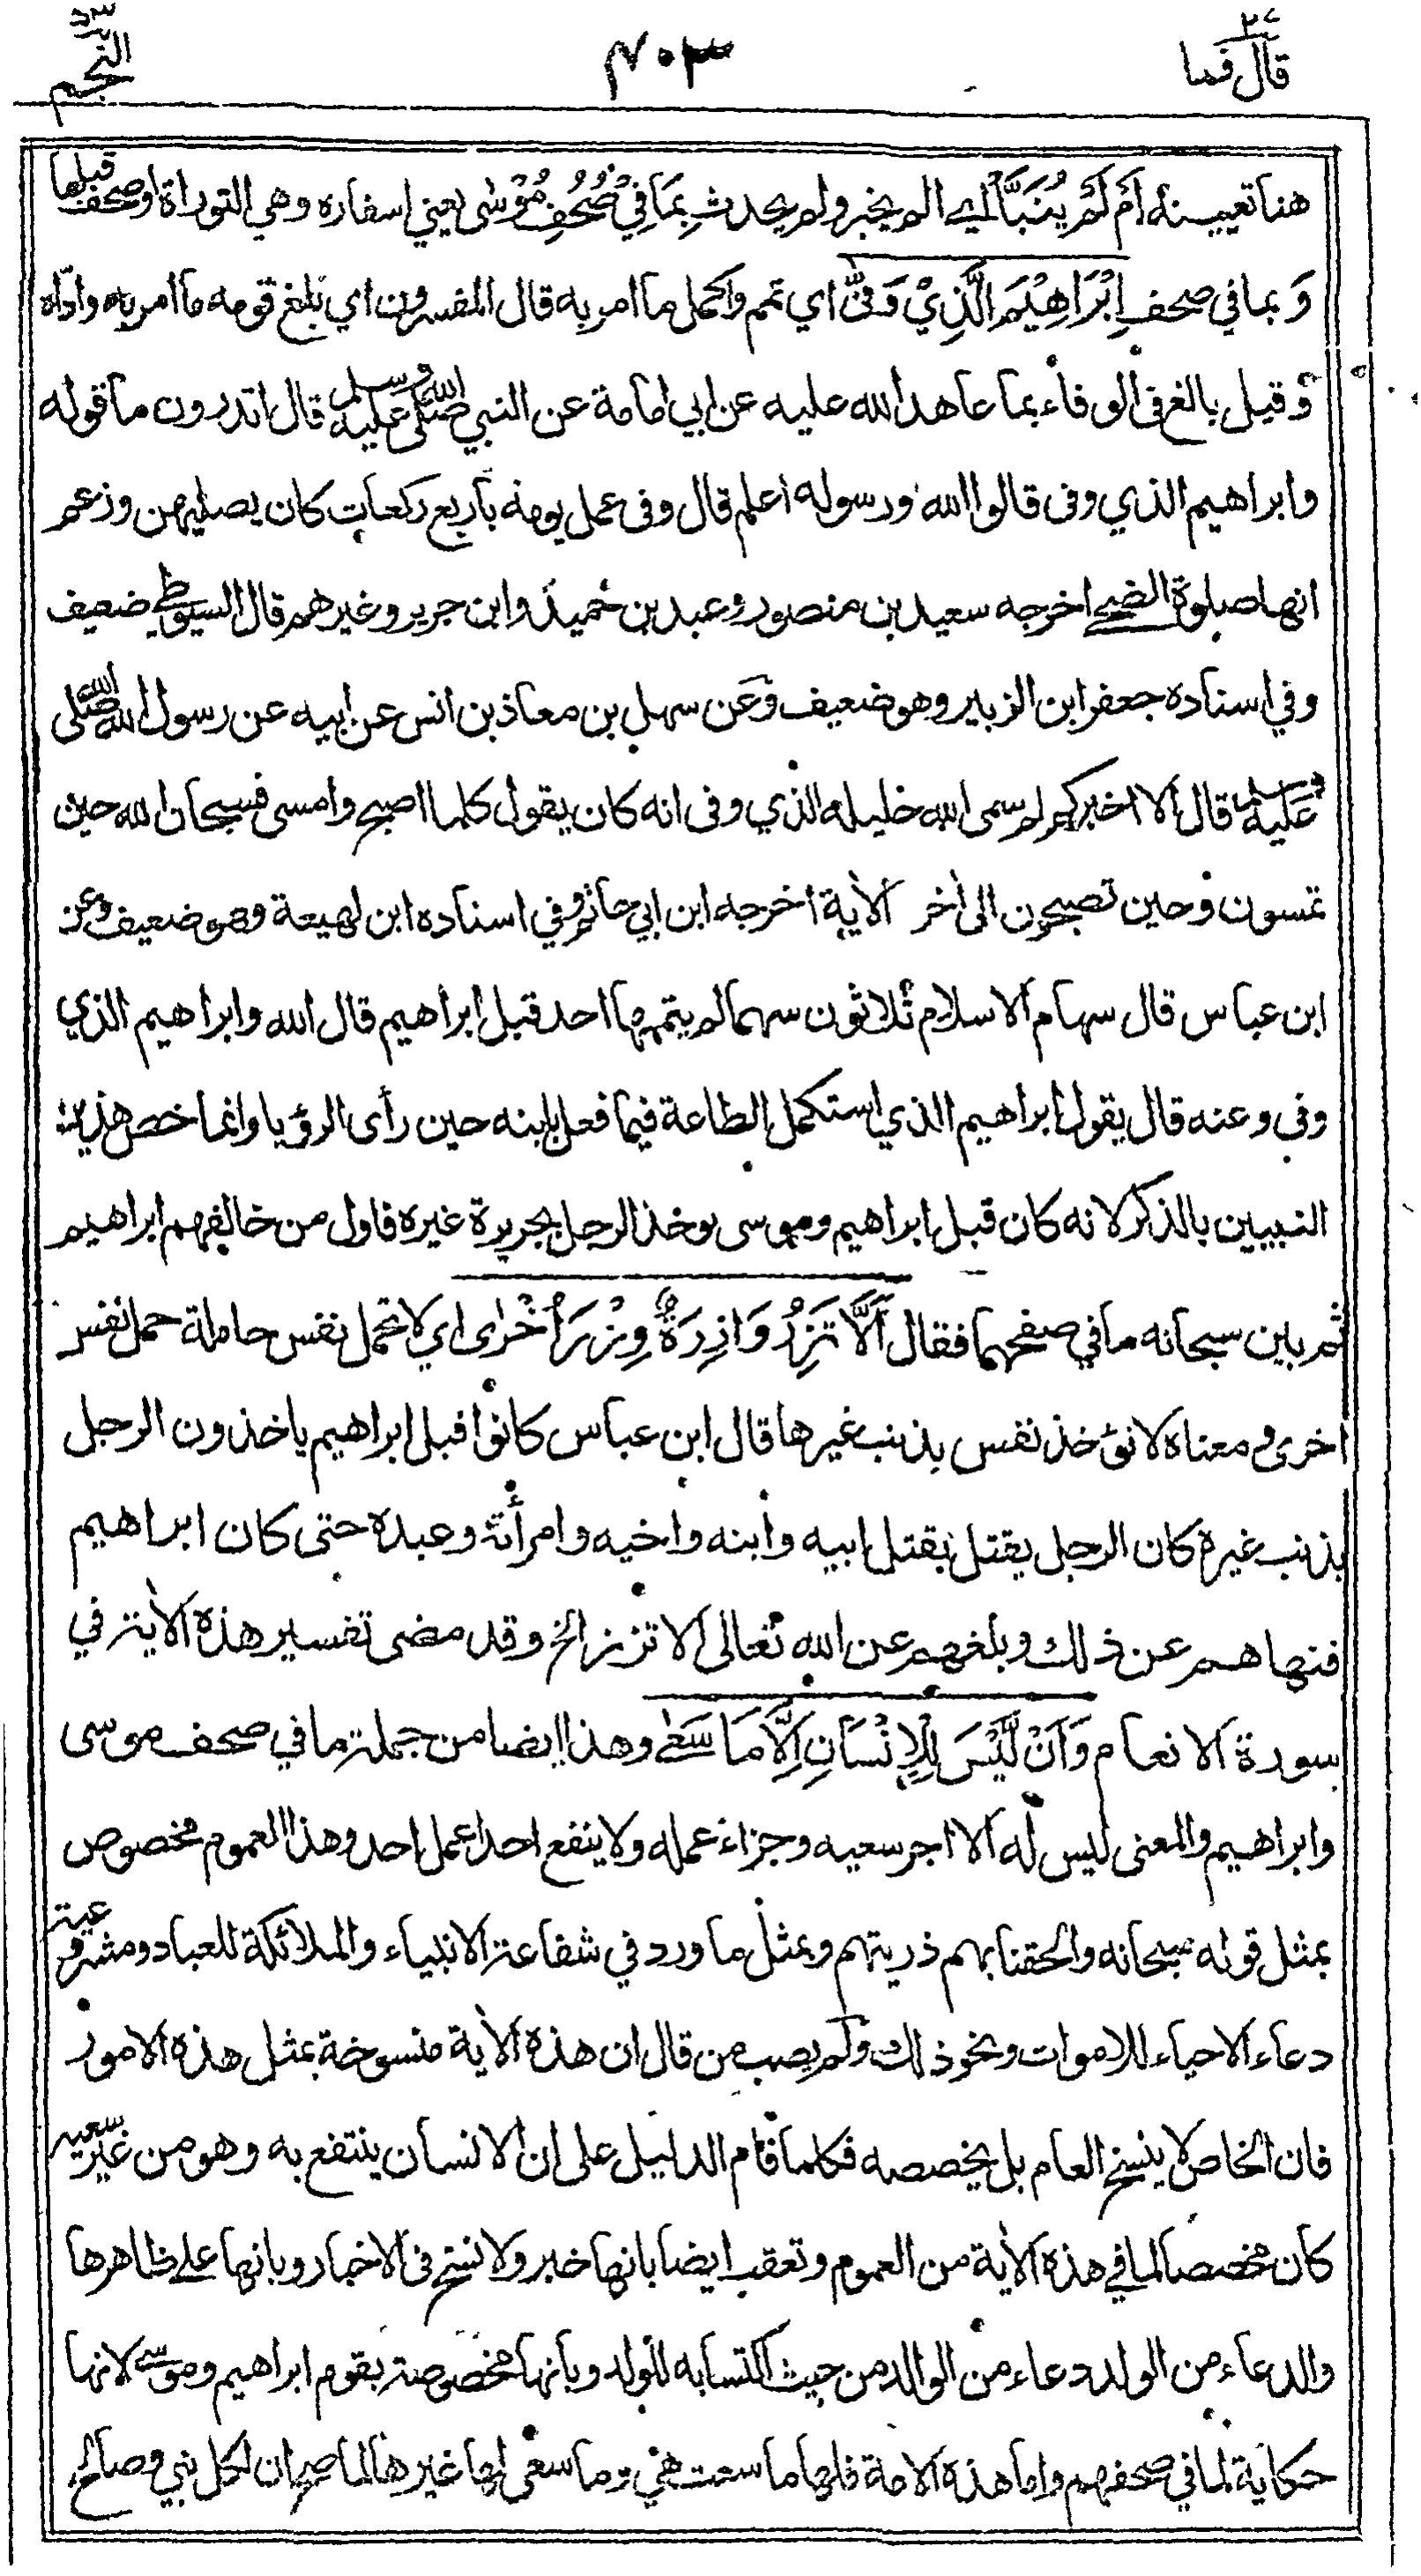 قال فما ٢٧
٧٠٣
النجم ٥٣
هنا تعيينه أَمْ لَمْ يُنَبَّأْ اي الم يخبر ولم يحدث بِمَا فِيْ صُحُفِ مُوْسٰى يعني اسفاره وهي التوراة او صحف قبلها
وَ بما في صحف اِبْرَاهِيْمَ الَّذِيْ وَفّٰى اي تمم واكمل ما امر به قال المفسرون اي بلغ قومه ما امر به واداه
وقيل بالغ في الوفاء بما عاهد الله عليه عن ابي امامة عن النبي صلى الله عليه وسلم قال اتدرون ما قوله
وابراهيم الذي وفى قالوا الله ورسوله اعلم قال وفى عمل يومه باربع ركعات كان يصليهن وزعم
انها صلوة الضحى اخرجه سعيد بن منصور وعبد بن حميد وابن جرير وغيرهم قال السيوطي ضعيف
وفي اسناده جعفر ابن الزبير وهو ضعيف وعن سهل بن معاذ بن انس عن ابيه عن رسول الله صلى الله
عليه وسلم قال الا اخبركم لم سمى الله خليله الذي وفى انه كان يقول كلما اصبح وامسى فسبحان الله حين
تمسون وحين تصبحون الى اٰخر الاٰية اخرجه ابن ابي حاتم وفي اسناده ابن لهيعة وهو ضعيف وعن
ابن عباس قال سهام الاسلام ثلاثون سهما لم يتمهها احد قبل ابراهيم قال الله وابراهيم الذي
وفى وعنه قال يقول ابراهيم الذي استكمل الطاعة فيما فعل بابنه حين رأى الرؤيا وانما خص هذين
النبيين بالذكر لانه كان قبل ابراهيم وموسى يوخذ الرجل بجريرة غيره فاول من خالفهم ابراهيم
ثم بين سبحانه ما في صحفهما فقال اَلَّا تَزِرُ وَازِرَةٌ وِزْرَ اُخْرٰى اي لا تحمل نفس حاملة حمل نفس
اخرى ومعناه لا تؤخذ نفس بذنب غيرها قال ابن عباس كانوا قبل ابراهيم ياخذون الرجل
بذنب غيره كان الرجل يقتل بقتل ابيه وابنه واخيه وامرأته وعبده حتى كان ابراهيم
فنهاهم عن ذلك وبلغهم عن الله تعالى الا تزر الخ وقد مضى تفسير هذه الاٰية في
سورة الانعام وَاَنْ لَّيْسَ لِلْاِنْسَانِ اِلَّا مَا سَعٰى وهذا ايضا من جملة ما في صحف موسى
وابراهيم والمعنى ليس له الا اجر سعيه وجزاء عمله ولا ينفع احدا عمل احد وهذا العموم مخصوص
بمثل قوله سبحانه والحقنا بهم ذريتهم وبمثل ما ورد في شفاعة الانبياء والملائكة للعباد ومشروعية
دعاء الاحياء للاموات ونحو ذلك ولم يصب من قال ان هذه الاٰية منسوخة بمثل هذه الامور
فان الخاص لا ينسخ العام بل يخصصه فكلما قام الدليل على ان الانسان ينتفع به وهو من غير سعيه
كان مخصصا لما في هذه الاٰية من العموم وتعقب ايضا بانها خبر ولا نسخ فى الاخبار وبانها على ظاهرها
والدعاء من الولد دعاء من الوالد من حيث اكتسابه للولد وبانها مخصوصة بقوم ابراهيم وموسى لانها
حكاية لما في صحفهم واما هذه الامة فلها ما سعت هي وما سعى لها غيرها لما صح ان لكل نبي وصالح